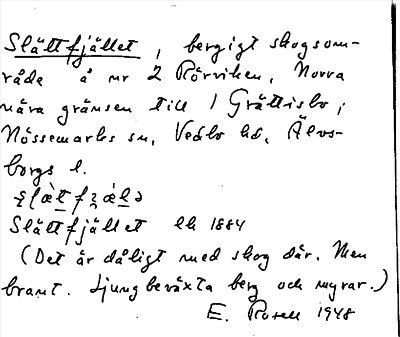 Slättfjället, bergigt skogsom-
råde å nr 2 Rörviken, Norra
nära gränsen till 1 Grättisbo,
Nössemarks sn, Vedbo hd, Älvs-
borgs l.
Slättfjället ek 1884
(Det är dåligt med skog där. Men
brant. Ljungbeväxta berg och myrar.)
E. Rosell 1948